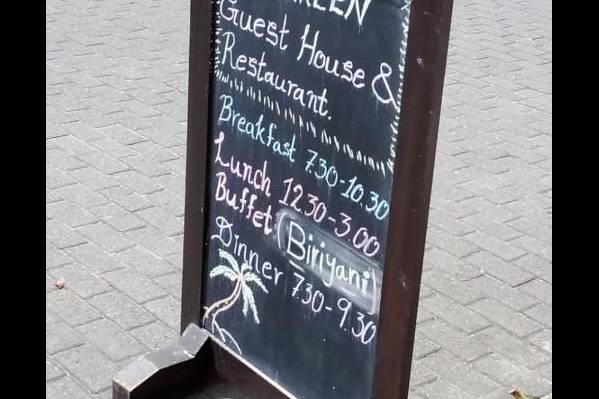 Guest House &
Restaurant.
Breakfast 7.30-10.30
Lunch 12.30-3.00
Buffet Biriyani
Dinner 7.30-9.30